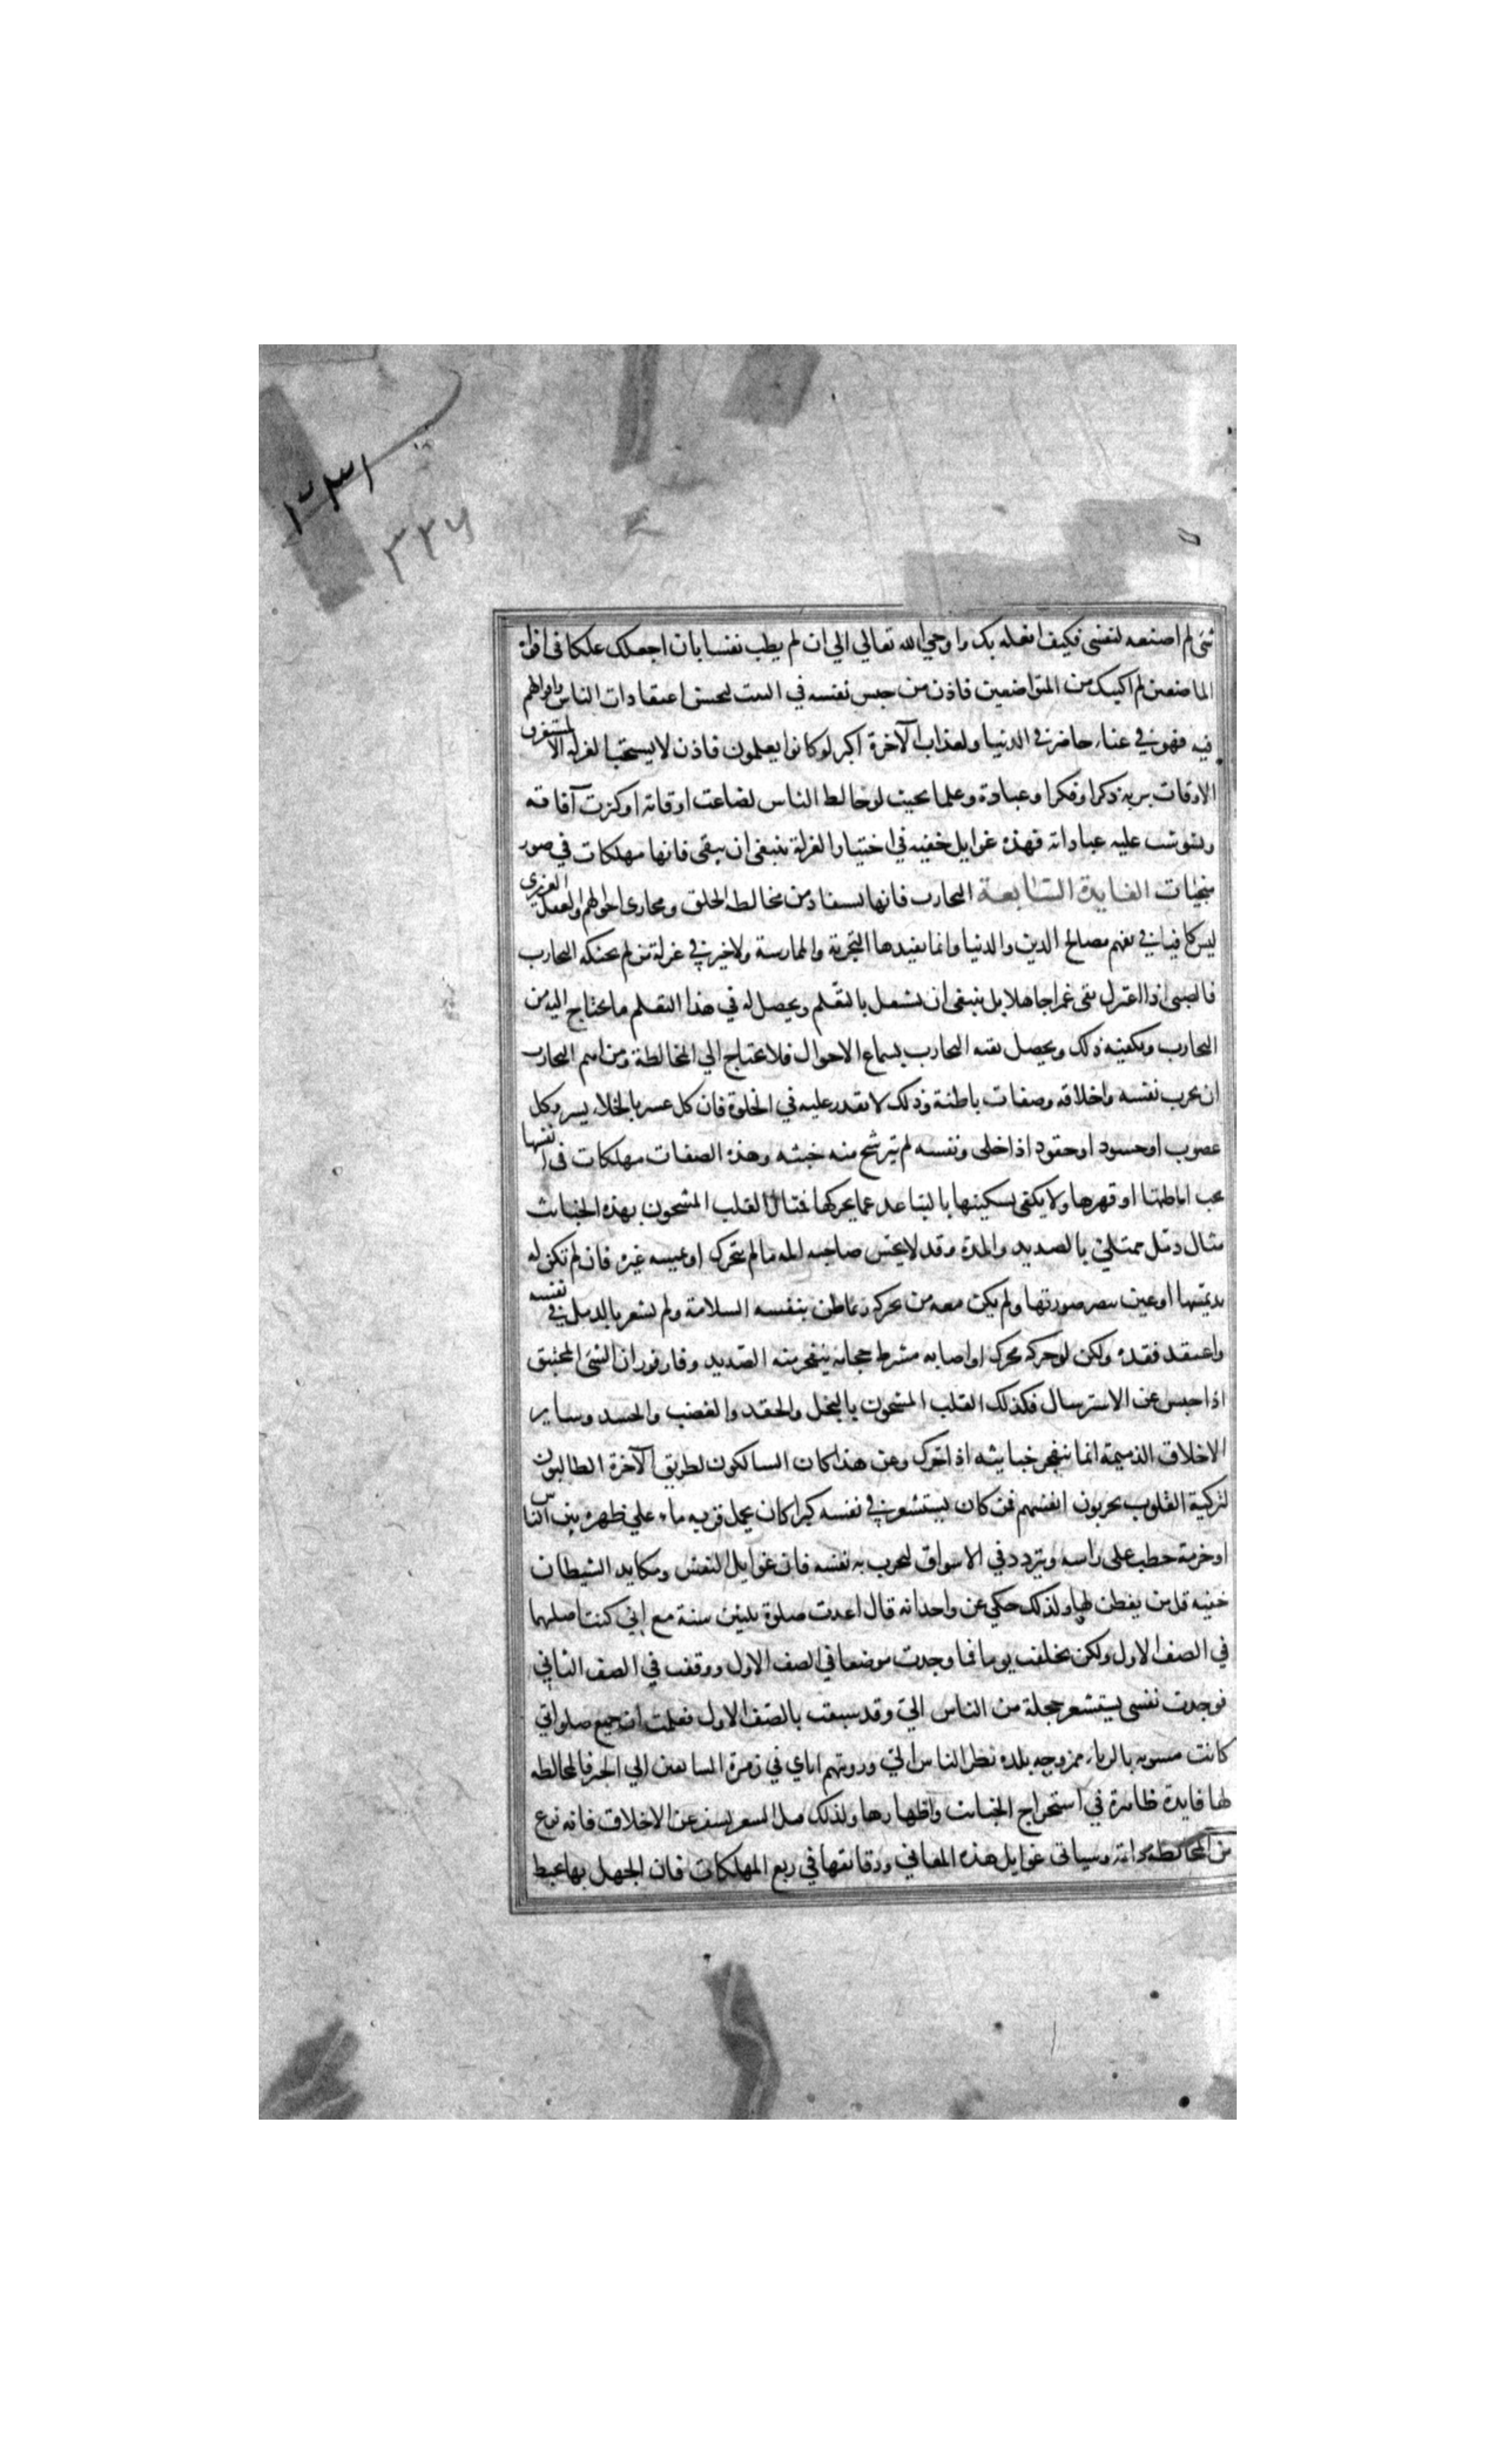 ١٣٣١
٣٢٦
شئ لم اصنعه لنفسى فكيف افعله بك واوحي الله تعالي الي ان لم يطب نفسا بان اجعلك علكا فى افواه
الماضغين لم اكتبك من المتواضعين فاذن من حبس نفسه في البيت لحسن اعتقادات الناس واقوالهم
فيه فهو في عناء حاضر في الدنيا ولعذاب الآخرة اكبر لوكانوا يعلمون فاذن لا يستحب العزلة الا لمستغرق
الاوقات بربه ذكرا وفكرا وعبادة وعلما بحيث لو خالط الناس لضاعت اوقاته او كثرت آفاته
ولتشوشت عليه عباداته فهذه غوايل خفيه في اختيار العزلة ينبغى ان يتقى فانها مهلكات في صور
منجيات الفايدة السابعة التجارب فانها يستفاد من مخالطه الخلق ومجارى احوالهم والعقل الغريزى
ليس كافيا في تفهم مصالح الدين والدنيا وانما يفيدها التجربة والممارسة ولا خير في عزلة من لم يحنكه التجارب
فالصبى اذا اعتزل بقى غمرا جاهلا بل ينبغى ان يشتغل بالتعلم ويحصل له في هذا التعلم ما يحتاج اليه من
التجارب ويكفيه ذلك ويحصل بقيه التجارب بسماع الاحوال فلا يحتاج الي المخالطة ومن اهم التجارب
ان يجرب نفسه واخلاقه وصفات باطنة وذلك لا يقدر عليه في الخلوة فان كل عسر بالخلاء يسر وكل
غضوب او حسود او حقود اذا خلى ونفسه لم يترشح منه خبثه وهذه الصفات مهلكات فى انفسها
يجب اماطتها او قهرها ولا يكفى تسكينها بالتباعد عما يحركها فمثال القلب المشحون بهذه الخبائث
مثال دمل ممتلئ بالصديد والمدة وقد لا يحس صاحبه المه ما لم يتحرك او يمسه غيره فان لم تكن له
يد يمسها او عين يبصر صورتها ولم يكن معه من يحركه ربما ظن بنفسه السلامة ولم يشعر بالدمل في نفسه
واعتقد فقده ولكن لو حركه محرك او اصابه مشرط حجام ينفجر منه الصديد وفار فوران الشئ المختنق
اذا حبس عن الاسترسال فكذلك القلب المشحون بالبخل والحقد والغضب والحسد وساير
الاخلاق الذميمة انما ينفجر خبايثه اذا تحرك وعن هذا كان السالكون لطريق الآخرة الطالبون
لتزكية القلوب يجربون انفسهم فمن كان يستشعر في نفسه كبرا كان يحمل قربه ماء علي ظهره بين الناس
او حزمة حطب على راسه ويتردد في الاسواق ليجرب به نفسه فان غوايل النفس ومكايد الشيطان
خفيه قل من يفطن لها ولذلك حكي عن واحد انه قال اعدت صلوة ثلثين سنة مع اني كنت اصليها
في الصف الاول ولكن تخلفت يوما فما وجدت موضعا في الصف الاول ووقفت في الصف الثاني
فوجدت نفسى يستشعر خجلة من الناس الي وقد سبقت بالصف الاول فعلمت ان جميع صلواتي
كانت مشوبه بالرياء ممزوجه بلذه نظر الناس الي ورويتهم اياي في زمرة السابقين الي الخير فالمخالطه
لها فايدة ظاهرة في استخراج الخبائث واظهارها ولذلك قيل السفر يسفر عن الاخلاق فانه نوع
من المخالطه دائمة وسياتى غوايل هذه المعاني ودقائقها في ربع المهلكات فان الجهل بها يحبط